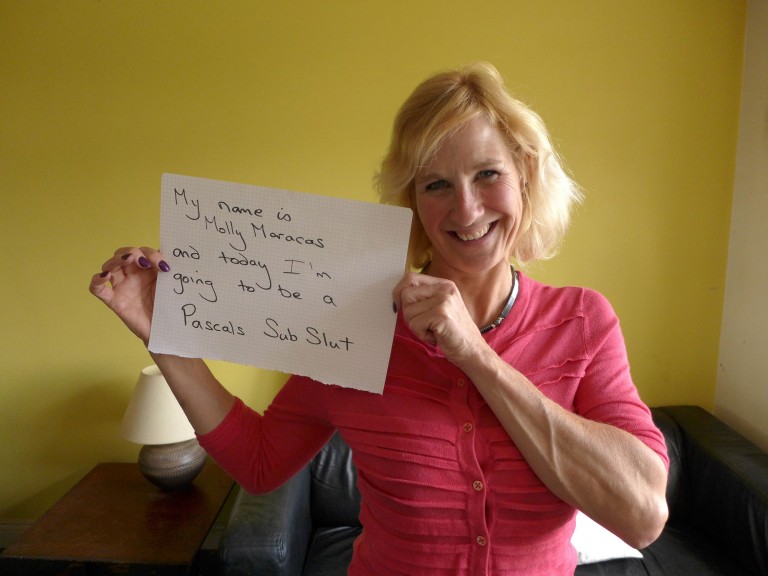 My name is
Molly Maracas
and today I'm
going to be a
Pascals Sub Slut